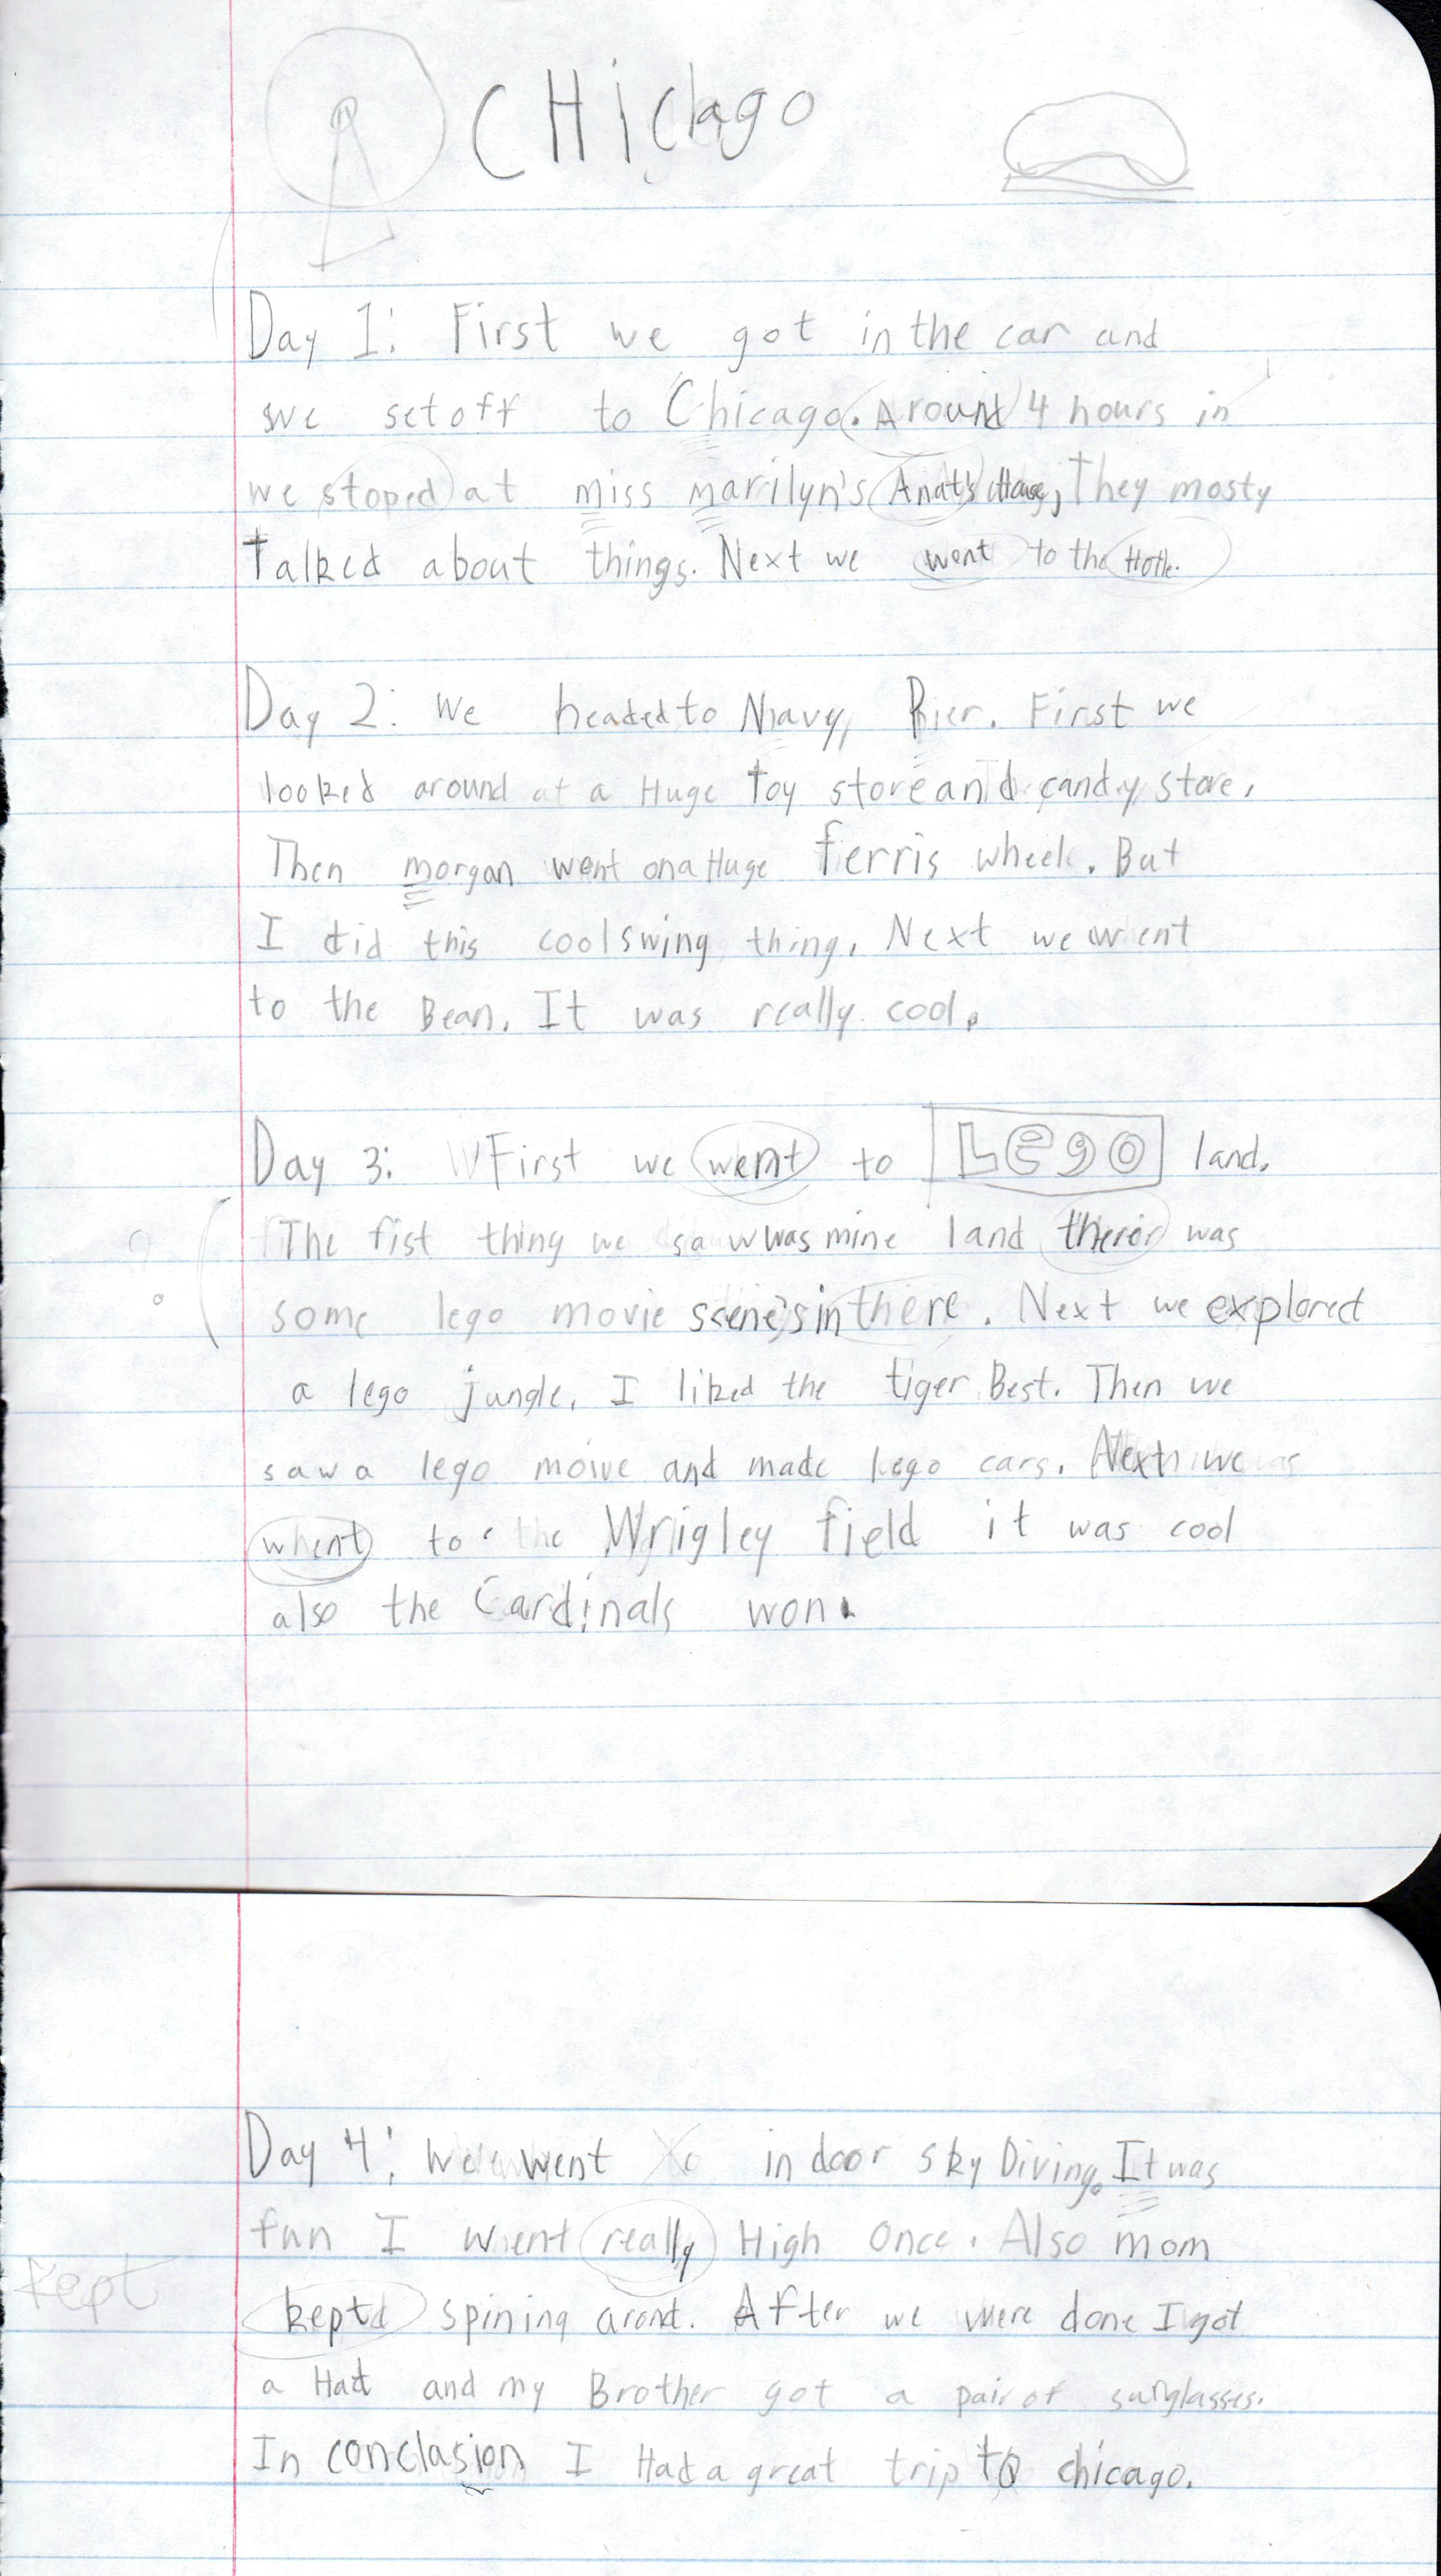 CHicago
Day 1: First we got in the car and
we set off to Chicago. Around 4 hours in
we stoped at miss marilyn's House, They mosty
Talked about things. Next we went to the Hotle.
Day 2: We headed to Navy Pier. First we
looked around at a Huge toy store and candy store.
Then morgan went on a Huge ferris wheel. But
I did this cool swing thing. Next we went
to the Bean. It was really cool.
Day 3: First we went to LEgO land.
The fist thing we saw was mine land was
some lego movie scene's in there. Next we explored
a lego jungle. I liked the tiger Best. Then we
saw a lego moive and made lego cars. Next we
whent to the Wrigley field it was cool
also the Cardinals won.
Day 4: We went indoor sky Diving. It was
fun I went really High Once. Also mom
kept
kept spining arond. After we were done I got
a Hat and my Brother got a pair of sunglasses.
In conclasion I Had a great trip to chicago.